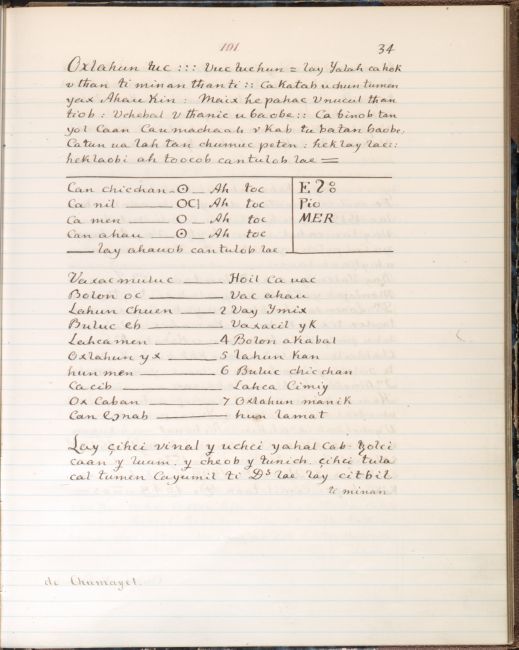 191
34
Oxlahun tuc ::: vuc tuc hun = lay Yalah ca hok
v than ti minan than ti :: Ca Katab uchun tumen
yax Ahau Kin : Maix he pahac v nucul than
tiob : Vchebal v thanic u baobe :: Ca binob tan
yol Caan Ca u machaab v Kab tu batan baobe.
Catun ua lah tan chumuc peten : hek lay lae::
heklaobi ah toocob can tulob lae =
Can chicchan - ʘ - Ah toc
Ca nil — OC| - Ah toc
Ca men — O - Ah toc
Can ahau — ʘ - Ah toc
— lay ahauob can tulob lae
Pio
MER
Vaxac muluc — Hoil Ca uac
Bolon oc — Vac ahau
Lahun Chuen — 2 Vay Ymix
Buluc eb — Vaxacil yK
Lahca men — 4 Bolon akabal
Oxlahun yx — 5 lahun Kan
hun men — 6 Buluc chicchan
Ca cib — Lahca Cimiy
Ox Caban — 7 Oxlahun manik
Can — hun lamat
Lay çihci vinal y uchci yahal Cab - holci
caan y luum . y cheob y tunich . çihci tula
cal tumen Cayumil ti Ds lae lay citbil
ti minan
de Chumayel.